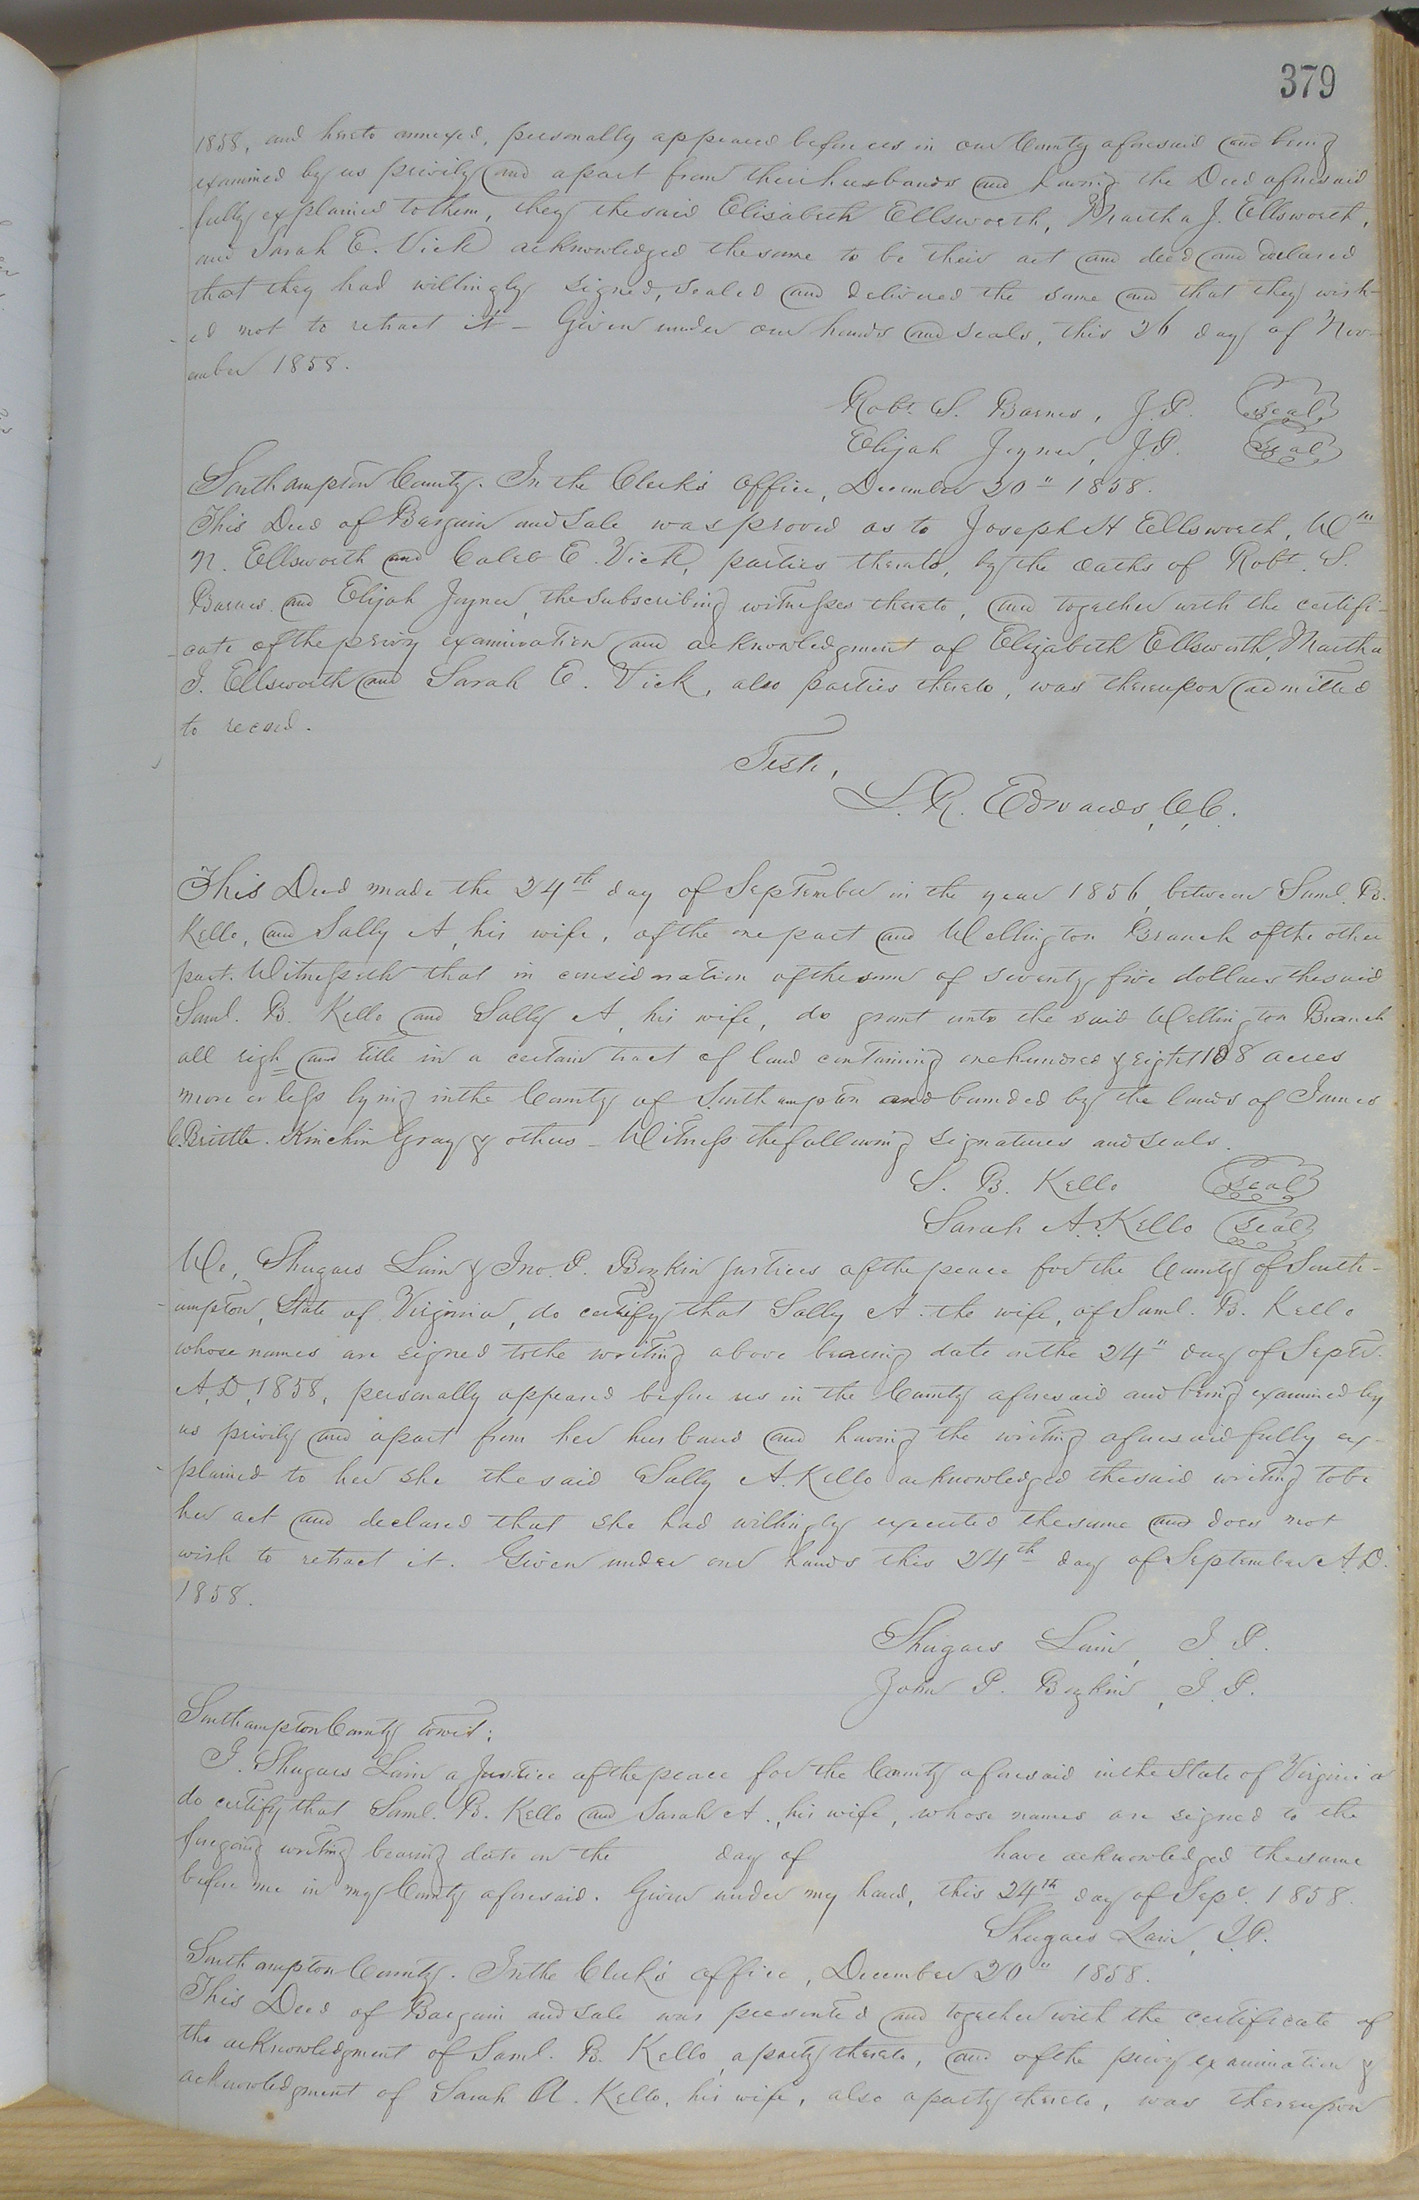 379
1858, and hereto annexed, personally appeared before us in our County aforesaid and being
examined by us privily and apart from their husbands and having the Deed aforesaid
fully explained to them, they the said Elisabeth Ellsworth, Martha J. Ellsworth,
and Sarah E. Vick acknowledged the same to be their act and deed and declared
that they had willingly signed, sealed and delivered the same and that they wish-
ed not to retract it - Given under our hands and seals, this 26 day of Nov-
ember 1858.
Robt. S. Barnes, J.P. Seal
Elijah Joyner, J.P. Seal
Southampton County. In the Clerk's Office, December 20" 1858.
This Deed of Bargain and Sale was proved as to Joseph H Ellsworth, Wm
N. Ellsworth and Caleb E. Vick, parties thereto, by the oaths of Robt. S.
Barnes and Elijah Joyner, the subscribing witnesses thereto, and together with the certifi-
cate of the privy examination and acknowledgment of Elizabeth Ellsworth, Martha
J. Ellsworth and Sarah E. Vick, also parties thereto, was thereupon admitted
to record.
Teste,
L. R. Edwards, C.C.
This Deed made the 24th day of September in the year 1856, between Saml. B.
Kello, and Sally A, his wife, of the one part and Wellington Branch of the other
part. Witnesseth that in consideration of the sum of seventy five dollars the said
Saml. B. Kello and Sally A, his wife, do grant unto the said Wellington Branch
all righ and title in a certain tract of land containing one hundred & eight 108 acres
more or less lying in the County of Southampton and bounded by the lands of James
C. Brittle. Kinchin Gray & others - Witness the following signatures and seals.
S. B. Kello Seal
Sarah A. Kello Seal
We, Shugars Lain & Jno. P. Bozkin justices of the peace for the County of South-
ampton, State of Virginia, do certify that Sally A. the wife, of Saml. B. Kello
whose names are signed to the writing above bearing date on the 24" day of Septr.
A.D. 1858, personally appeared before us in the County aforesaid and being examined by
us privily and apart from her husband and having the writing aforesaid fully ex-
plained to her she the said Sally A. Kello acknowledged the said writing to be
her act and declared that she had willingly executed the same and does not
wish to retract it. Given under our hands this 24th day of September A.D.
1858.
Shugars Lain, J.P.
John P. Bozkin, J.P.
Southampton County towit:
I. Shugars Lain a Justice of the peace for the County aforesaid in the State of Virginia
do certify that Saml. B. Kello and Sarah A., his wife, whose names are signed to the
foregoing writing bearing date on the day of have acknowledged the same
before me in my County aforesaid. Given under my hand, this 24th day of Sept. 1858.
Shugars Lain, J.P.
Southampton County. In the Clerk's office, December 20" 1858.
This Deed of Bargain and sale was presented and together with the certificate of
the acknowledgment of Saml. B. Kello, a party thereto, and of the privy examination &
acknowledgment of Sarah A. Kello, his wife, also a party thereto, was thereupon